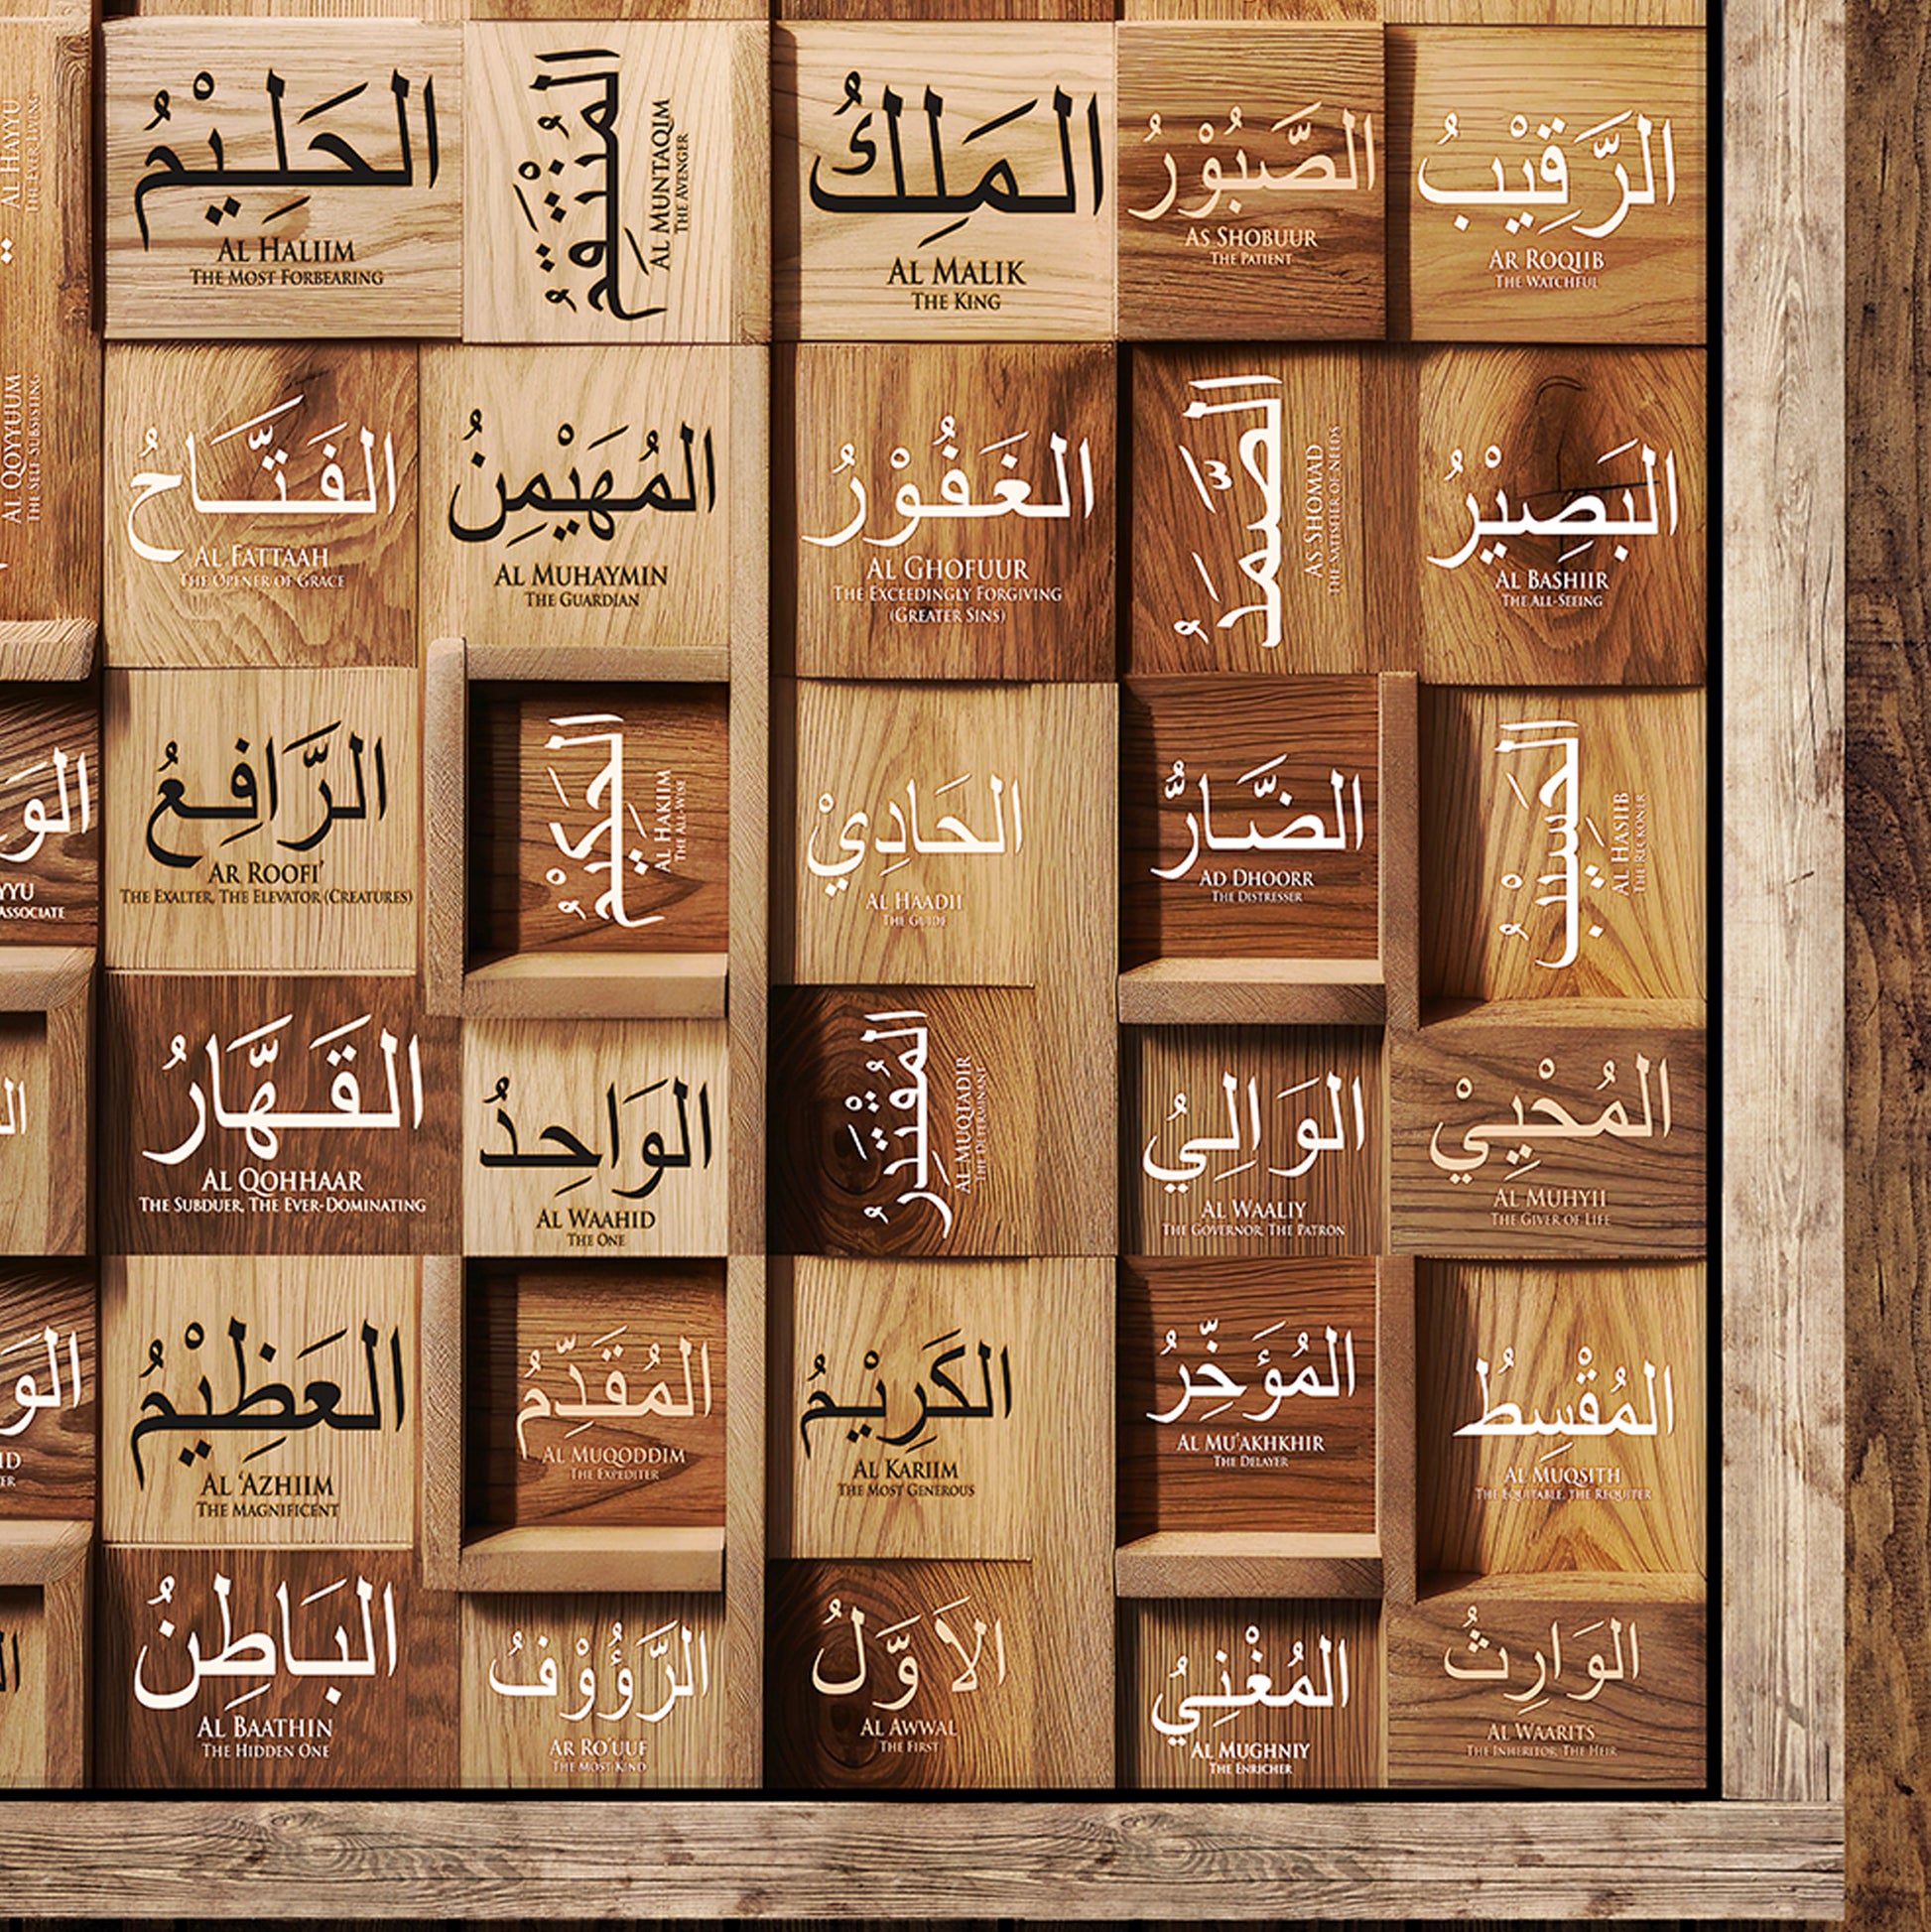 AL HAYYU
THE EVER LIVING
الحَلِيمُ
AL HALIIM
THE MOST FORBEARING
المُنْتَقِمُ
AL MUNTAQIM
THE AVENGER
المَلِكُ
AL MALIK
THE KING
الصَّبُوْرُ
AS SHOBUUR
THE PATIENT
الرَّقِيْبُ
AR ROQIIB
THE WATCHFUL
AL QOYYUUM
THE SELF SUBSISTING
الفَتَّاحُ
AL FATTAAH
THE OPENER OF GRACE
المُهَيْمِنُ
AL MUHAYMIN
THE GUARDIAN
الغَفُوْرُ
AL GHOFUUR
THE EXCEEDINGLY FORGIVING
(GREATER SINS)
الصَّمَدُ
AS SHOMAD
THE SATISFIER OF NEEDS
البَصِيْرُ
AL BASHIIR
THE ALL-SEEING
الوَ
YYU
ASSOCIATE
الرَّافِعُ
AR ROOFI'
THE EXALTER, THE ELEVATOR (CREATURES)
الحَكِيْمُ
AL HAKIIM
THE ALL-WISE
الحَادِيْ
AL HAADII
THE GUIDE
الضَّارُّ
AD DHOORR
THE DISTRESSER
الحَسِيْبُ
AL HASIB
THE RECKONER
القَهَّارُ
AL QOHHAAR
THE SUBDUER, THE EVER-DOMINATING
الوَاحِدُ
AL WAAHID
THE ONE
المُقْتَدِرُ
AL MUQTADIR
THE DETERMINANT
الوَالِيُ
AL WAALIY
THE GOVERNOR, THE PATRON
المُحْيِيْ
AL MUHYII
THE GIVER OF LIFE
الو
ID
ER
العَظِيْمُ
AL 'AZHIIM
THE MAGNIFICENT
المُقَدِّمُ
AL MUQODDIM
THE EXPEDITER
الكَرِيْمُ
AL KARIIM
THE MOST GENEROUS
المُؤَخِّرُ
AL MU'AKHKHIR
THE DELAYER
المُقْسِطُ
AL MUQSITH
THE EQUITABLE, THE REQUITER
البَاطِنُ
AL BAATHIN
THE HIDDEN ONE
الرَّؤُوْفُ
AR RO'UUF
THE MOST KIND
الاَوَّلُ
AL AWWAL
THE FIRST
المُغْنِيُ
AL MUGHNIY
THE ENRICHER
الوَارِثُ
AL WAARITS
THE INHERITOR, THE HEIR